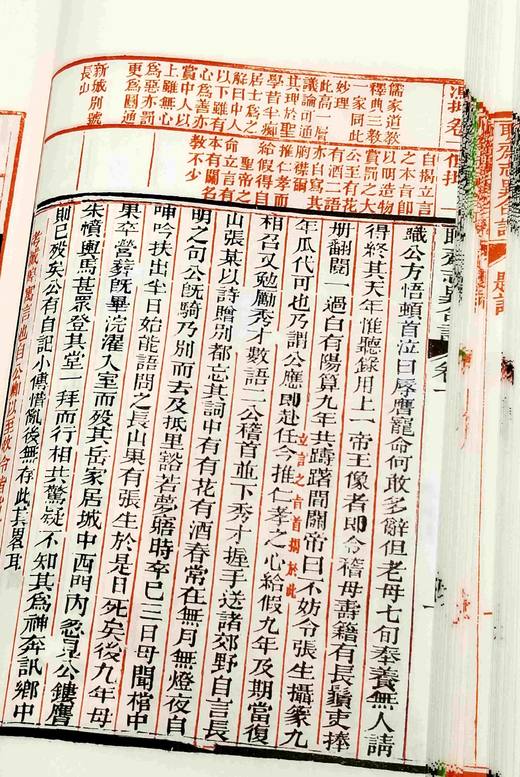 聊齋志異合評
題詞
聊齋志異合評 卷一
馮批卷一
但批
儒家道教
釋典三教
一家同此
妙理
此高一層
議論可通
其理於聖
學者半痴
居士為之
解曰中人
以下雖有
心為善亦
賞中人以
上雖無心
為惡亦罰
更為圓通
新城別號
長山
自揭立言
之本旨即
以明造物
賞罰之大
公至有花
有酒二語
亦自寫其
胸襟爾
推仁孝而
給假得自
聖帝之
命立言有
本有關名
教不少
職公方悟頓首泣曰辱膺寵命何敢多辭但老母七旬奉養無人請
得終其天年惟聽錄用上一帝王像者即令稽母壽籍有長鬚吏捧
册翻閱一過白有陽算九年共躊躇間關帝曰不妨令張生攝篆九
立言之旨首揭於此
年瓜代可也乃謂公應即赴任今推仁孝之心給假九年及期當復
相召又勉勵秀才數語二公稽首並下秀才握手送諸郊野自言長
山張某以詩贈別都忘其詞中有有花有酒春常在無月無燈夜自
明之句公既騎乃別而去及抵里豁若夢寤時卒已三日母聞棺中
呻吟扶出半日始能語問之長山果有張生於是日死矣後九年母
果卒營葬既畢浣濯入室而歿其岳家居城中西門內忽見公鏤膺
朱幩輿馬甚眾登其堂一拜而行相共驚疑不知其爲神奔訊鄉中
則已歿矣公有自記小傳惜亂後無存此其畧耳